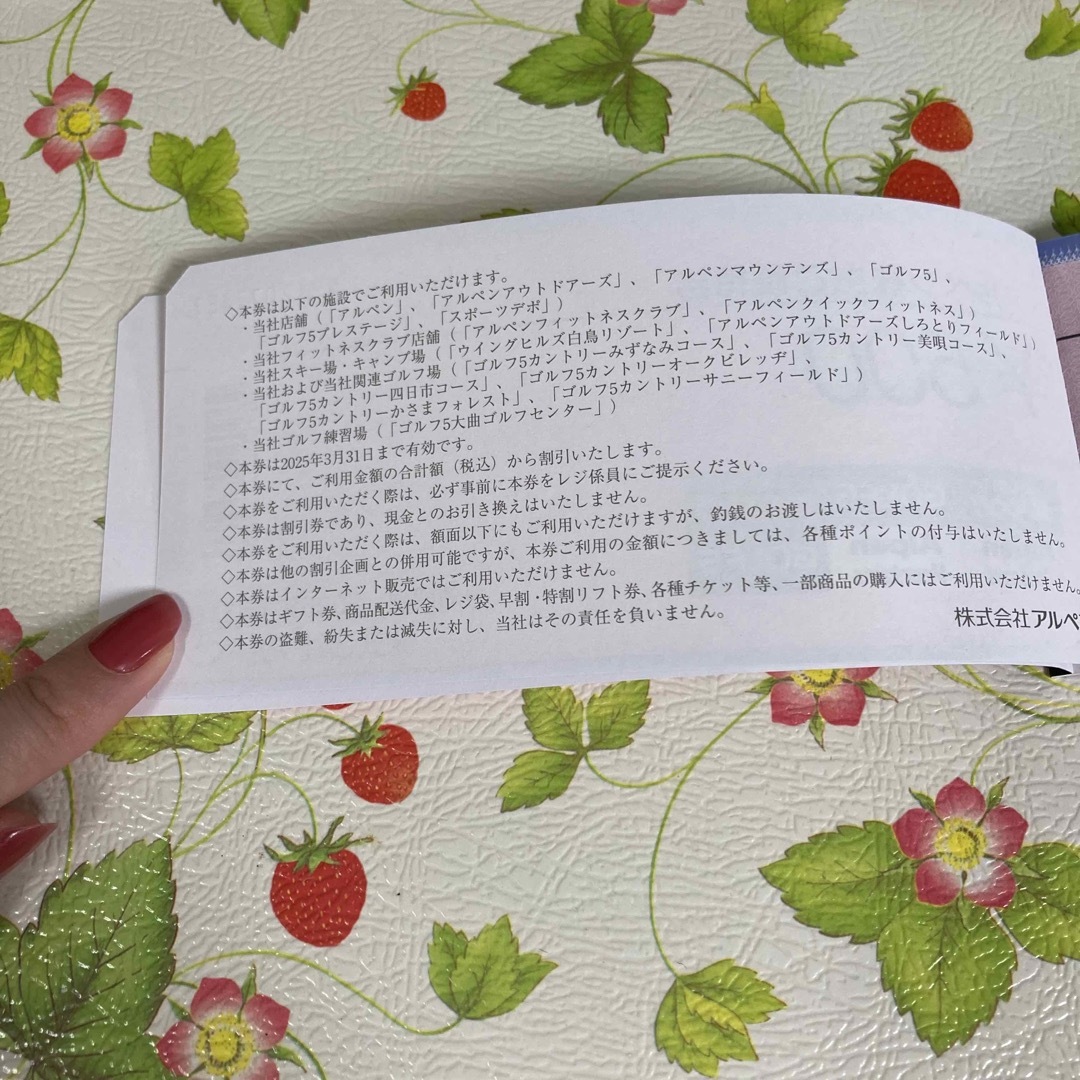 ◇本券は以下の施設でご利用いただけます。
・当社店舗（「アルペン」、「アルペンアウトドアーズ」、「アルペンマウンテンズ」、「ゴルフ5」、
「ゴルフ5プレステージ」、「スポーツデポ」）
・当社フィットネスクラブ店舗（「アルペンフィットネスクラブ」、「アルペンクイックフィットネス」）
・当社スキー場・キャンプ場（「ウイングヒルズ白鳥リゾート」、「アルペンアウトドアーズしろとりフィールド」）
・当社および当社関連ゴルフ場（「ゴルフ5カントリーみずなみコース」、「ゴルフ5カントリー美唄コース」、
「ゴルフ5カントリー四日市コース」、「ゴルフ5カントリーオークビレッヂ」、
「ゴルフ5カントリーかさまフォレスト」、「ゴルフ5カントリーサニーフィールド」）
・当社ゴルフ練習場（「ゴルフ5大曲ゴルフセンター」）
◇本券は2025年3月31日まで有効です。
◇本券にて、ご利用金額の合計額（税込）から割引いたします。
◇本券をご利用いただく際は、必ず事前に本券をレジ係員にご提示ください。
◇本券は割引券であり、現金とのお引き換えはいたしません。
◇本券をご利用いただく際は、額面以下にもご利用いただけますが、釣銭のお渡しはいたしません。
◇本券は他の割引企画との併用可能ですが、本券ご利用の金額につきましては、各種ポイントの付与はいたしません。
◇本券はインターネット販売ではご利用いただけません。
◇本券はギフト券、商品配送代金、レジ袋、早割・特割リフト券、各種チケット等、一部商品の購入にはご利用いただけません。
◇本券の盗難、紛失または滅失に対し、当社はその責任を負いません。
株式会社アルペ